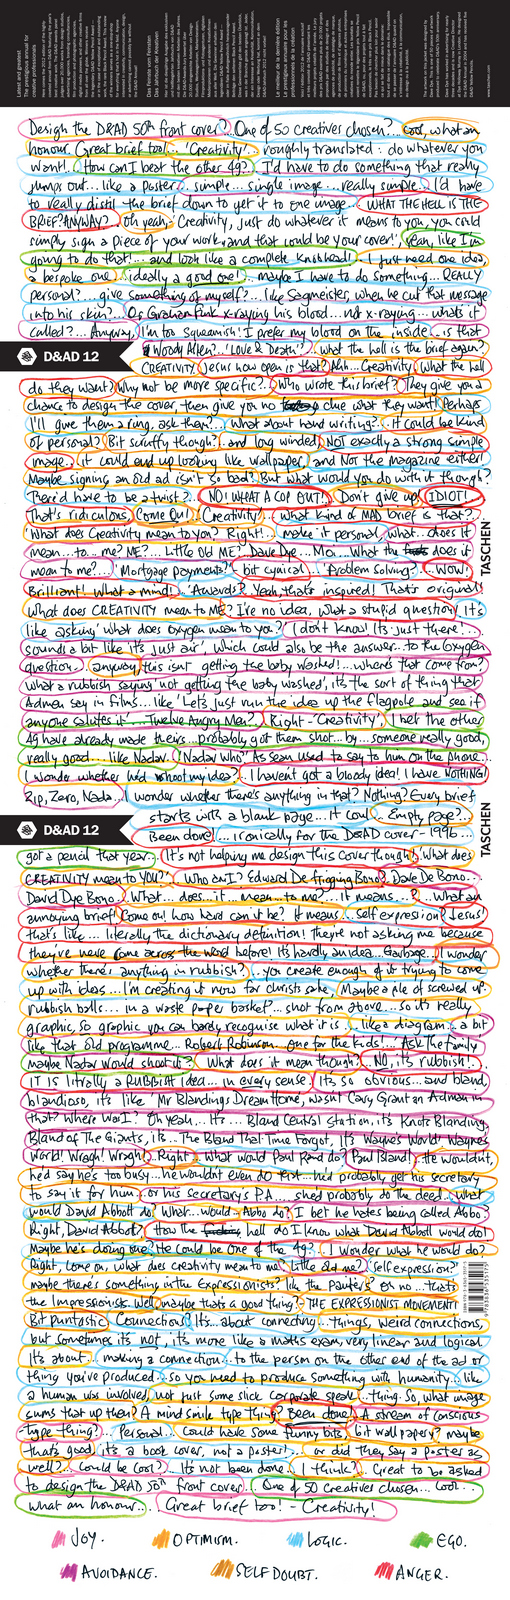 Latest and greatest
The precious annual for
creative professionals
Das Feinste vom Feinsten
Das Jahrbuch der Kreativen
Le meilleur de la dernière édition
Design the D&AD 50th front cover?.. One of 50 creatives chosen?... Cool, what an
honour. Great brief too!... 'Creativity'... roughly translated: do whatever you
want!.. How can I beat the other 49?... I'd have to do something that really
jumps out... like a poster... simple... single image... really simple... I'd have
to really distil the brief down to get it to one image... WHAT THE HELL IS THE
BRIEF? ANYWAY? Oh yeah: 'Creativity, just do whatever it means to you, you could
simply sign a piece of your work and that could be your cover!' Yeah, like I'm
going to do that!... and look like a complete Knobhead! I just need one idea,
a bespoke one... ideally a good one!... maybe I have to do something... REALLY
personal?... give something of myself?... like Sagmeister, when he cut that message
into his skin?.. Or Graham Fink x-raying his blood... not x-raying... whats it
called?... Anyway, I'm too squeamish! I prefer my blood on the inside... is that
Woody Allen?... 'Love & Death'? What the hell is the brief again?
D&AD 12
CREATIVITY. Jesus how open is that? Ahh... Creativity. What the hell
do they want? Why not be more specific?.. Who wrote this brief? They give you a
chance to design the cover, then give you no clue what they want! Perhaps
I'll give them a ring, ask them?... What about hand writing?... it could be kind
of personal? Bit scruffy though?.. and long winded, NOT exactly a strong simple
image.. it could end up looking like wallpaper, and Not the magazine either!
Maybe signing an old ad isn't so bad? But what would you do with it though?
There'd have to be a twist?.. NO! WHAT A COP OUT! Don't give up! IDIOT!
That's ridiculous. Come On! Creativity! What kind of MAD brief is that?.
'What does Creativity mean to you? Right!... make it personal, what... does it
mean... to... me? ME?... Little Old ME? Dave Dye... Moi... What the does it
mean to me?... Mortgage payments? bit cynical. 'Problem solving?'... WOW!
TASCHEN
Brilliant! What a mind! 'Awards'? Yeah, that's inspired! That's original!
What does CREATIVITY mean to ME? I've no idea, what a stupid question, it's
like asking 'what does oxygen mean to you?' I don't know! It's just there!...
sounds a bit like 'it's just air', which could also be the answer... to the Oxygen
question. anyway, this isn't getting the baby washed!... where's that come from?
What a rubbish saying 'not getting the baby washed', it's the sort of thing that
Admen say in films... like 'Let's just run the idea up the flagpole and see if
anyone salutes it'... Twelve Angry Men?.. Right - 'Creativity'. I bet the other
49 have already made theirs... probably got them shot... by... someone really good,
really good... like Nadav. 'Nadav Who' As Sean used to say to him on the phone...
I wonder whether he'd shoot my idea? I haven't got a bloody idea! I have NOTHING!
Zip, Zero, Nada... I wonder whether there's anything in that? Nothing? Every brief
starts with a blank page... it coul.. Empty page?..
D&AD 12
TASCHEN
Been done!... ironically for the D&AD cover - 1996...
got a pencil that year... It's not helping me design this cover though! 'What does
CREATIVITY mean to YOU?' Who am I? Edward De frigging Bono? Dave De Bono...
David Dye Bono.. What... does... it... mean... to me?... it means...?... what an
annoying brief! Come on! how hard can it be? It means... self expression? Jesus!
that's like... literally the dictionary definition! they're not asking me because
they've never come across the word before! It's hardly an idea... Garbage... I wonder
whether there's anything in rubbish?... you create enough of it trying to come
up with ideas... I'm creating it now for christs sake, Maybe a pile of screwed up
rubbish balls... in a waste paper basket?... shot from above... so it's really
graphic, so graphic you can barely recognise what it is... like a diagram... a bit
like that old programme... Robert Robinson... one for the kids!... Ask the family
maybe Nadav would shoot it?.. What does it mean though? NO, it's rubbish!..
IT IS litrally a RUBBISH idea... in every sense. It's so obvious... and bland,
blandioso, it's like Mr Blandings Dream Home, wasn't Cary Grant an Adman in
that? Where was I? Oh yeah... Its... Bland Central Station, it's Knots Blanding,
Bland of The Giants, it's... The Bland That Time Forgot, It's Wayne's World! Waynes
World! Wragh! Wragh! Right... What would Paul Rand do? Paul Island! He wouldn't,
he'd say he's too busy... he wouldn't even do that... he'd probably get his secretary
to say it for him.. or his secretary's P.A.... she'd probably do the deed. What
would David Abbott do? What.. would.. Abbo do? I bet he hates being called Abbo?
Right, David Abbott? How the hell do I know what David Abbott would do!
Maybe he's doing one? He could be One of the 49? I wonder what he would do?
Right, come on, what does creativity mean to me? little old me? 'Self expression?'
maybe there's something in the Expressionists? like the Painters? or no... thats
the Impressionists. Well, maybe thats a good thing? THE EXPRESSIONIST MOVEMENT!
Bit puntastic. Connections? Its... about connecting... things, weird connections,
but sometimes it's not, it's more like a maths exam, very linear and logical.
It's about... making a connection... to the person on the other end of the ad or
thing you've produced... so you need to produce something with humanity... like
a human was involved, not just some slick corporate speak... thing. So, what image
sums that up then? A mind smile type thing? Been done! A stream of conscious
-type thing?... Personal... Could have some funny bits, bit wallpapery? maybe
thats good, it's a book cover, not a poster!... or did they say a poster as
well?... Could be Cool?... It's not been done... I think? Great to be asked
to design the D&AD 50th front cover... One of 50 Creatives chosen... Cool...
what an honour... Great brief too! - Creativity!
JOY. OPTIMISM. LOGIC. EGO.
AVOIDANCE. SELF DOUBT. ANGER.